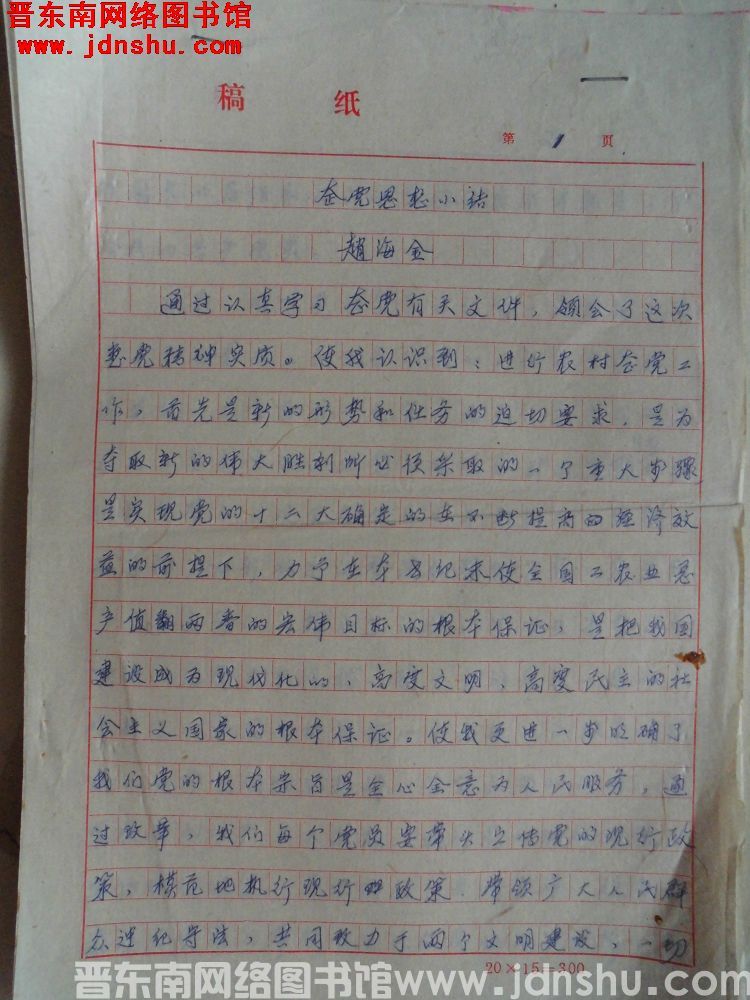 晋东南网络图书馆
www.jdnshu.com
稿 纸
第 1 页
整党思想小结
赵海金
通过认真学习整党有关文件，领会了这次
整党精神实质。使我认识到：进行农村整党工
作，首先是新的形势和任务的迫切要求，是为
夺取新的伟大胜利所必须采取的一个重大步骤
是实现党的十二大确定的在不断提高的经济效
益的前提下，力争在本世纪末使全国工农业总
产值翻两番的宏伟目标的根本保证，是把我国
建设成为现代化的、高度文明、高度民主的社
会主义国家的根本保证。使我更进一步明确了
我们党的根本宗旨是全心全意为人民服务，通
过改革，我们每个党员要带头宣传党的现行政
策，模范地执行现行政策，带领广大人民群
众遵纪守法，共同致力于两个文明建设，一切
20×15=300
晋东南网络图书馆 www.jdnshu.com